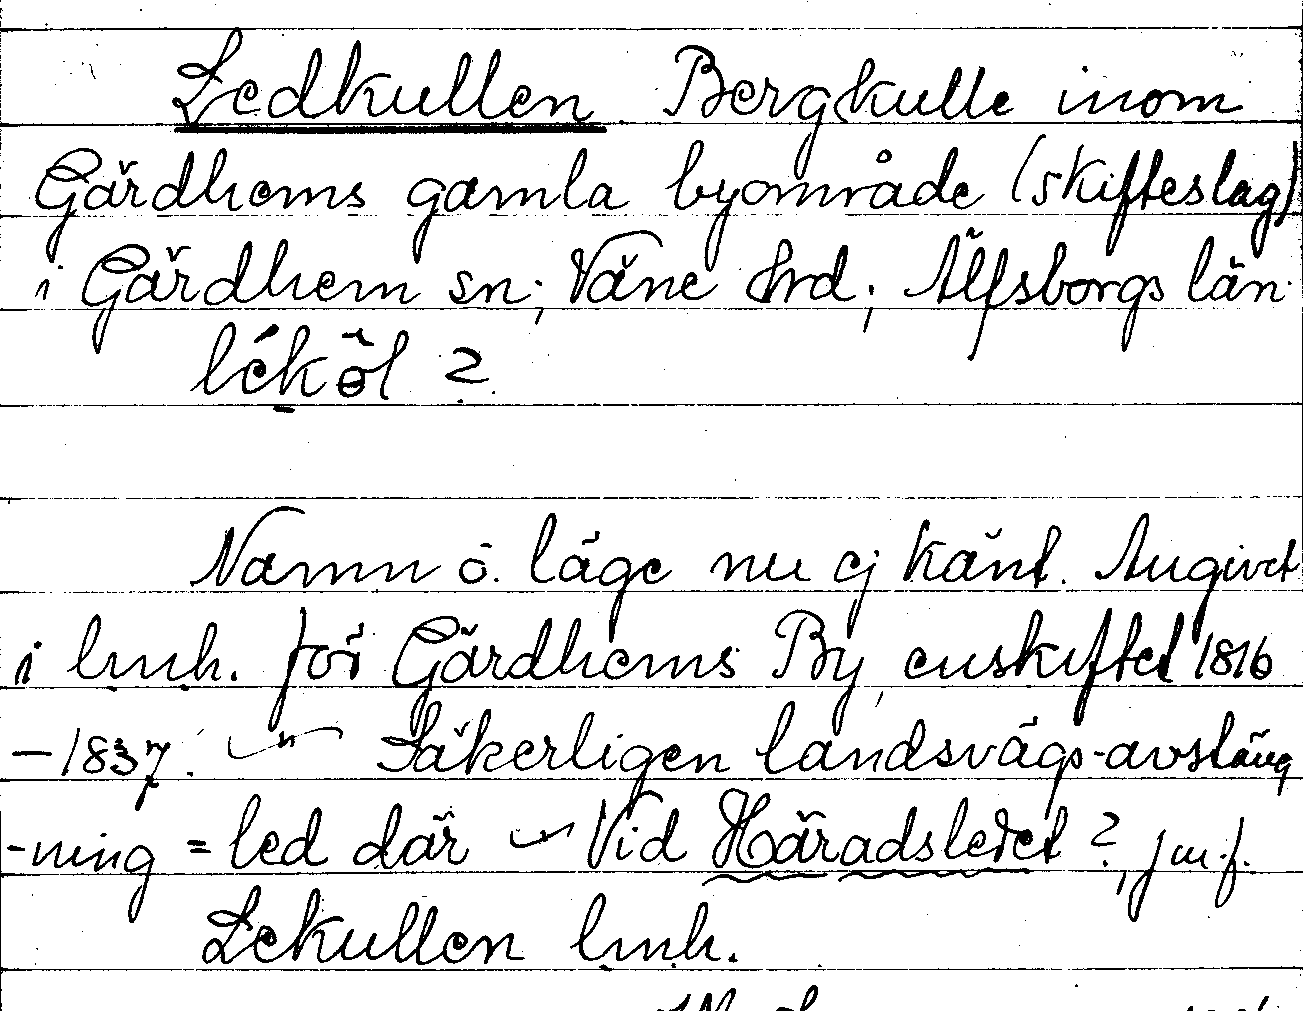 Ledkullen. Bergkulle inom
Gärdhems gamla byområde (skifteslag)
i Gärdhem sn; Väne Hrd; Älfsborgs län.
léköl ?
Namn o. läge nu ej känt. Angivet
i lmh. för Gärdhems By, enskiftet 1816
-1837. Säkerligen landsvägs-avstäng
-ning = led där Vid Häradsledet ?, jmf.
Lekullen lmh.